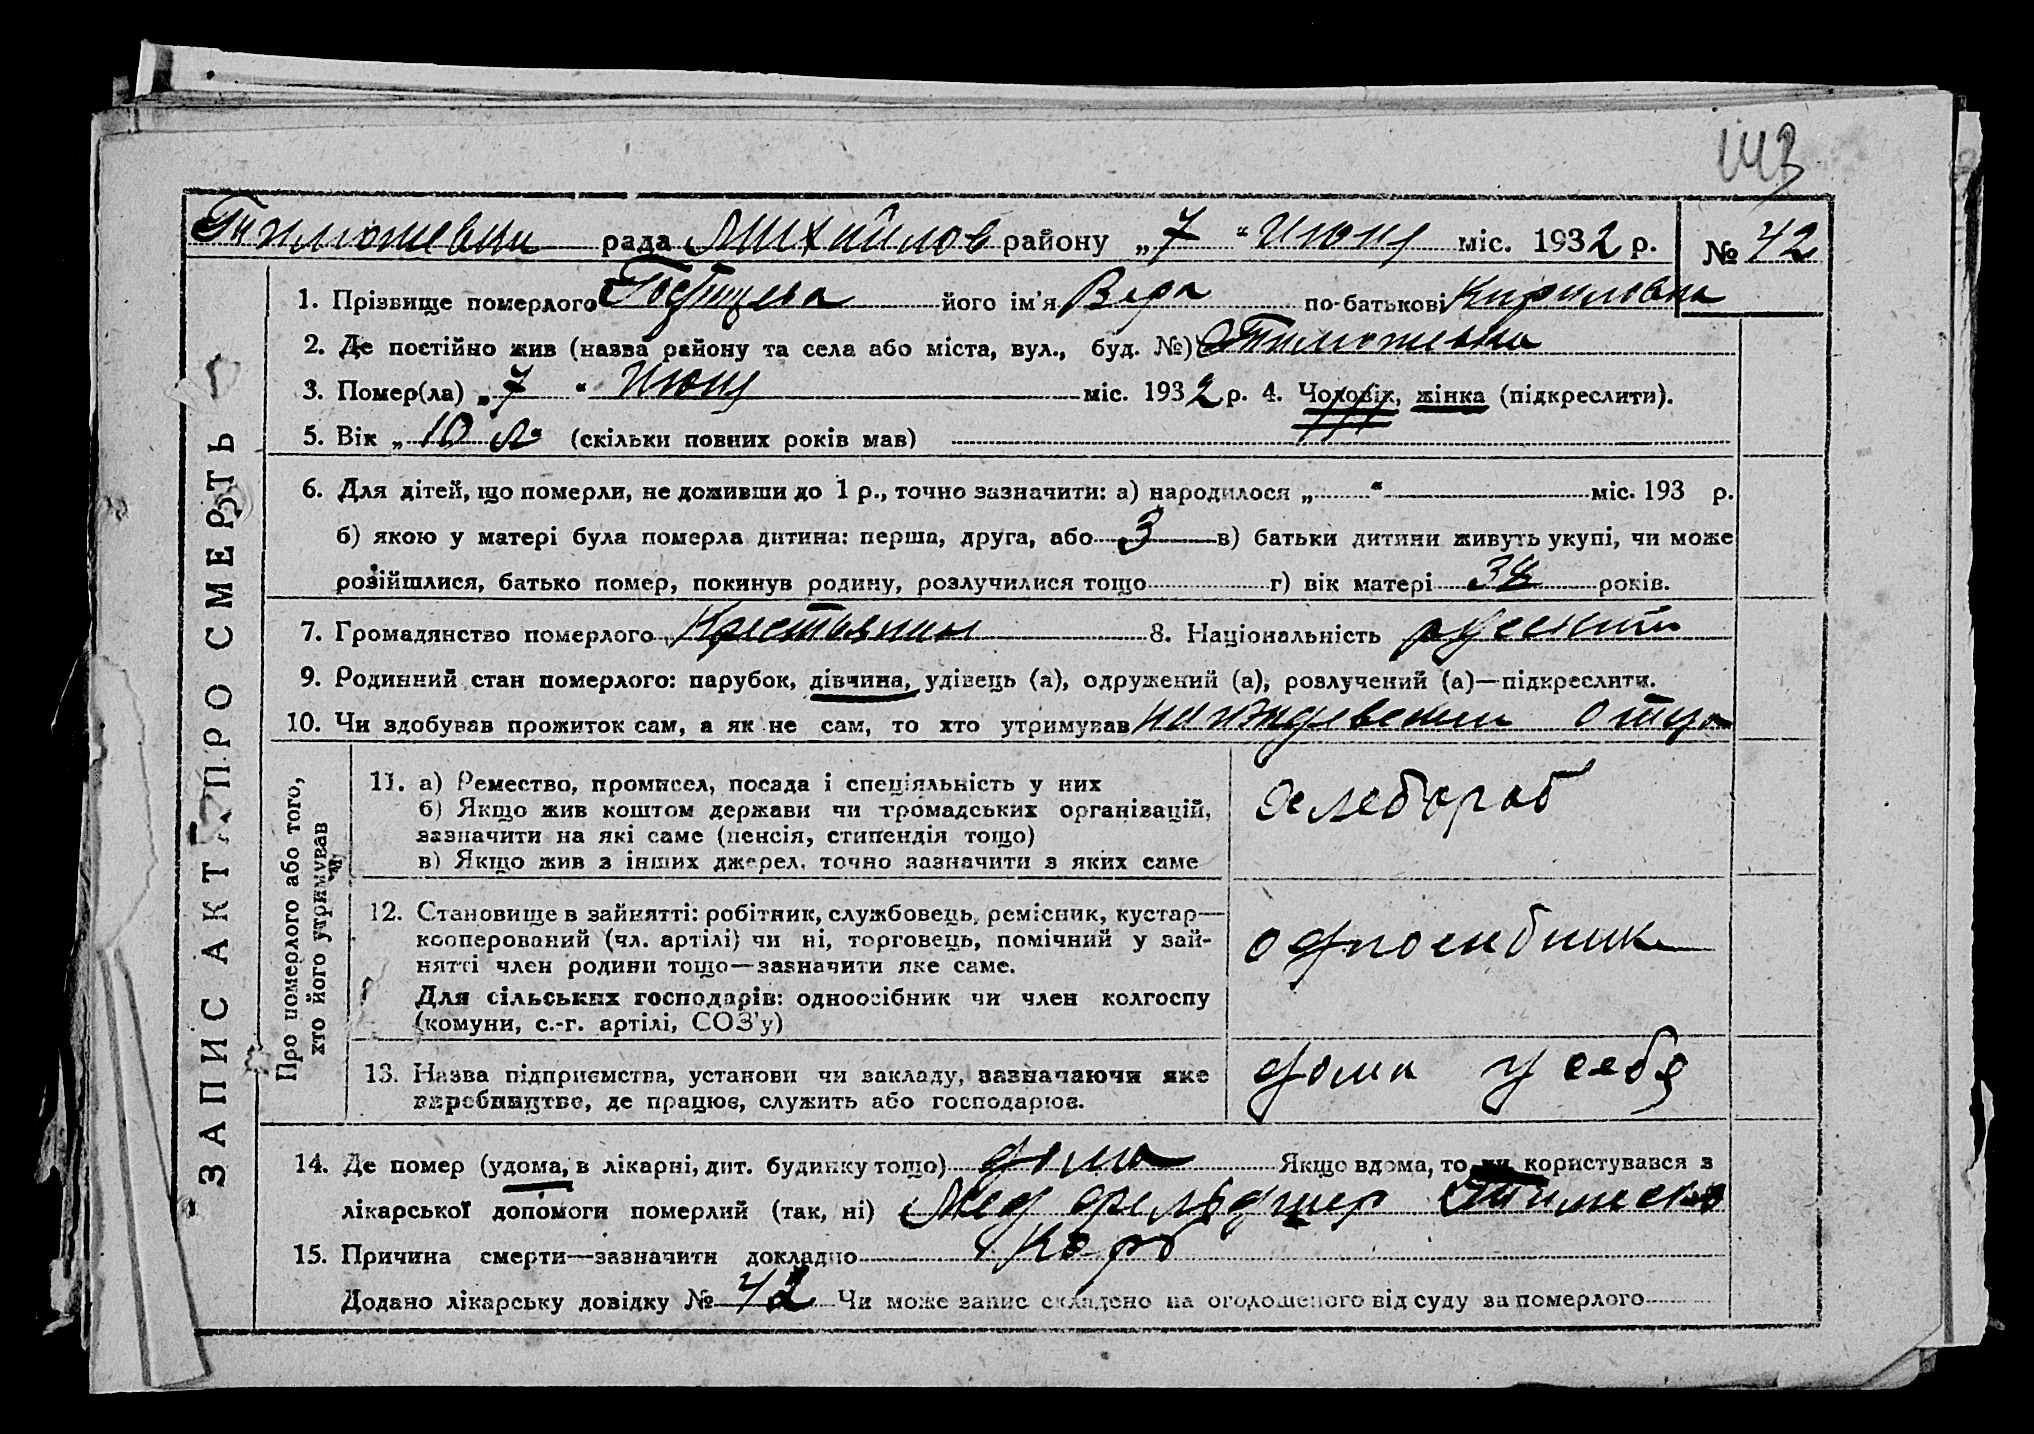 143
Тимошевки рада Михайлов району „7“ Июня міс. 1932 р. № 42
ЗАПИС АКТА ПРО СМЕРТЬ
1. Прізвище померлого його ім'я Вера по-батькові Кириловна
2. Де постійно жив (назва району та села або міста, вул., буд. №) с Тимошевка
3. Помер(ла) „7“ Июня міс. 1932 р. 4. Чоловік, жінка (підкреслити).
5. Вік „10 л“ (скільки повних років мав)
6. Для дітей, що померли, не доживши до 1 р., точно зазначити: а) народилося „ “ міс. 193 р.
б) якою у матері була померла дитина: перша, друга, або 3 в) батьки дитини живуть укупі, чи може
розійшлися, батько помер, покинув родину, розлучилися тощо г) вік матері років.
7. Громадянство померлого 8. Національність руский
9. Родинний стан померлого: парубок, дівчина, удівець (а), одружений (а), розлучений (а)—підкреслити.
10. Чи здобував прожиток сам, а як не сам, то хто утримував на иждевении отца
Про померлого або того,
хто його утримував
11. а) Ремество, промисел, посада і спеціяльність у них
б) Якщо жив коштом держави чи громадських організацій,
зазначити на які саме (пенсія, стипендія тощо)
в) Якщо жив з інших джерел, точно зазначити з яких саме
хлебороб
12. Становище в зайнятті: робітник, службовець, ремісник, кустар—
кооперований (чл. артілі) чи ні, торговець, помічний у зай-
нятті член родини тощо—зазначити яке саме.
Для сільських господарів: одноосібник чи член колгоспу
(комуни, с.-г. артілі, СОЗ'у)
односибник
13. Назва підприємства, установи чи закладу, зазначаючи яке
виробництво, де працює, служить або господарює.
дома у себя
14. Де помер (удома, в лікарні, дит. будинку тощо) дома Якщо вдома, то чи користувався з
лікарської допомоги померлий (так, ні) Мед фельдшер
15. Причина смерти—зазначити докладно Корь
Додано лікарську довідку № 42 Чи може запис складено на оголошеного від суду за померлого